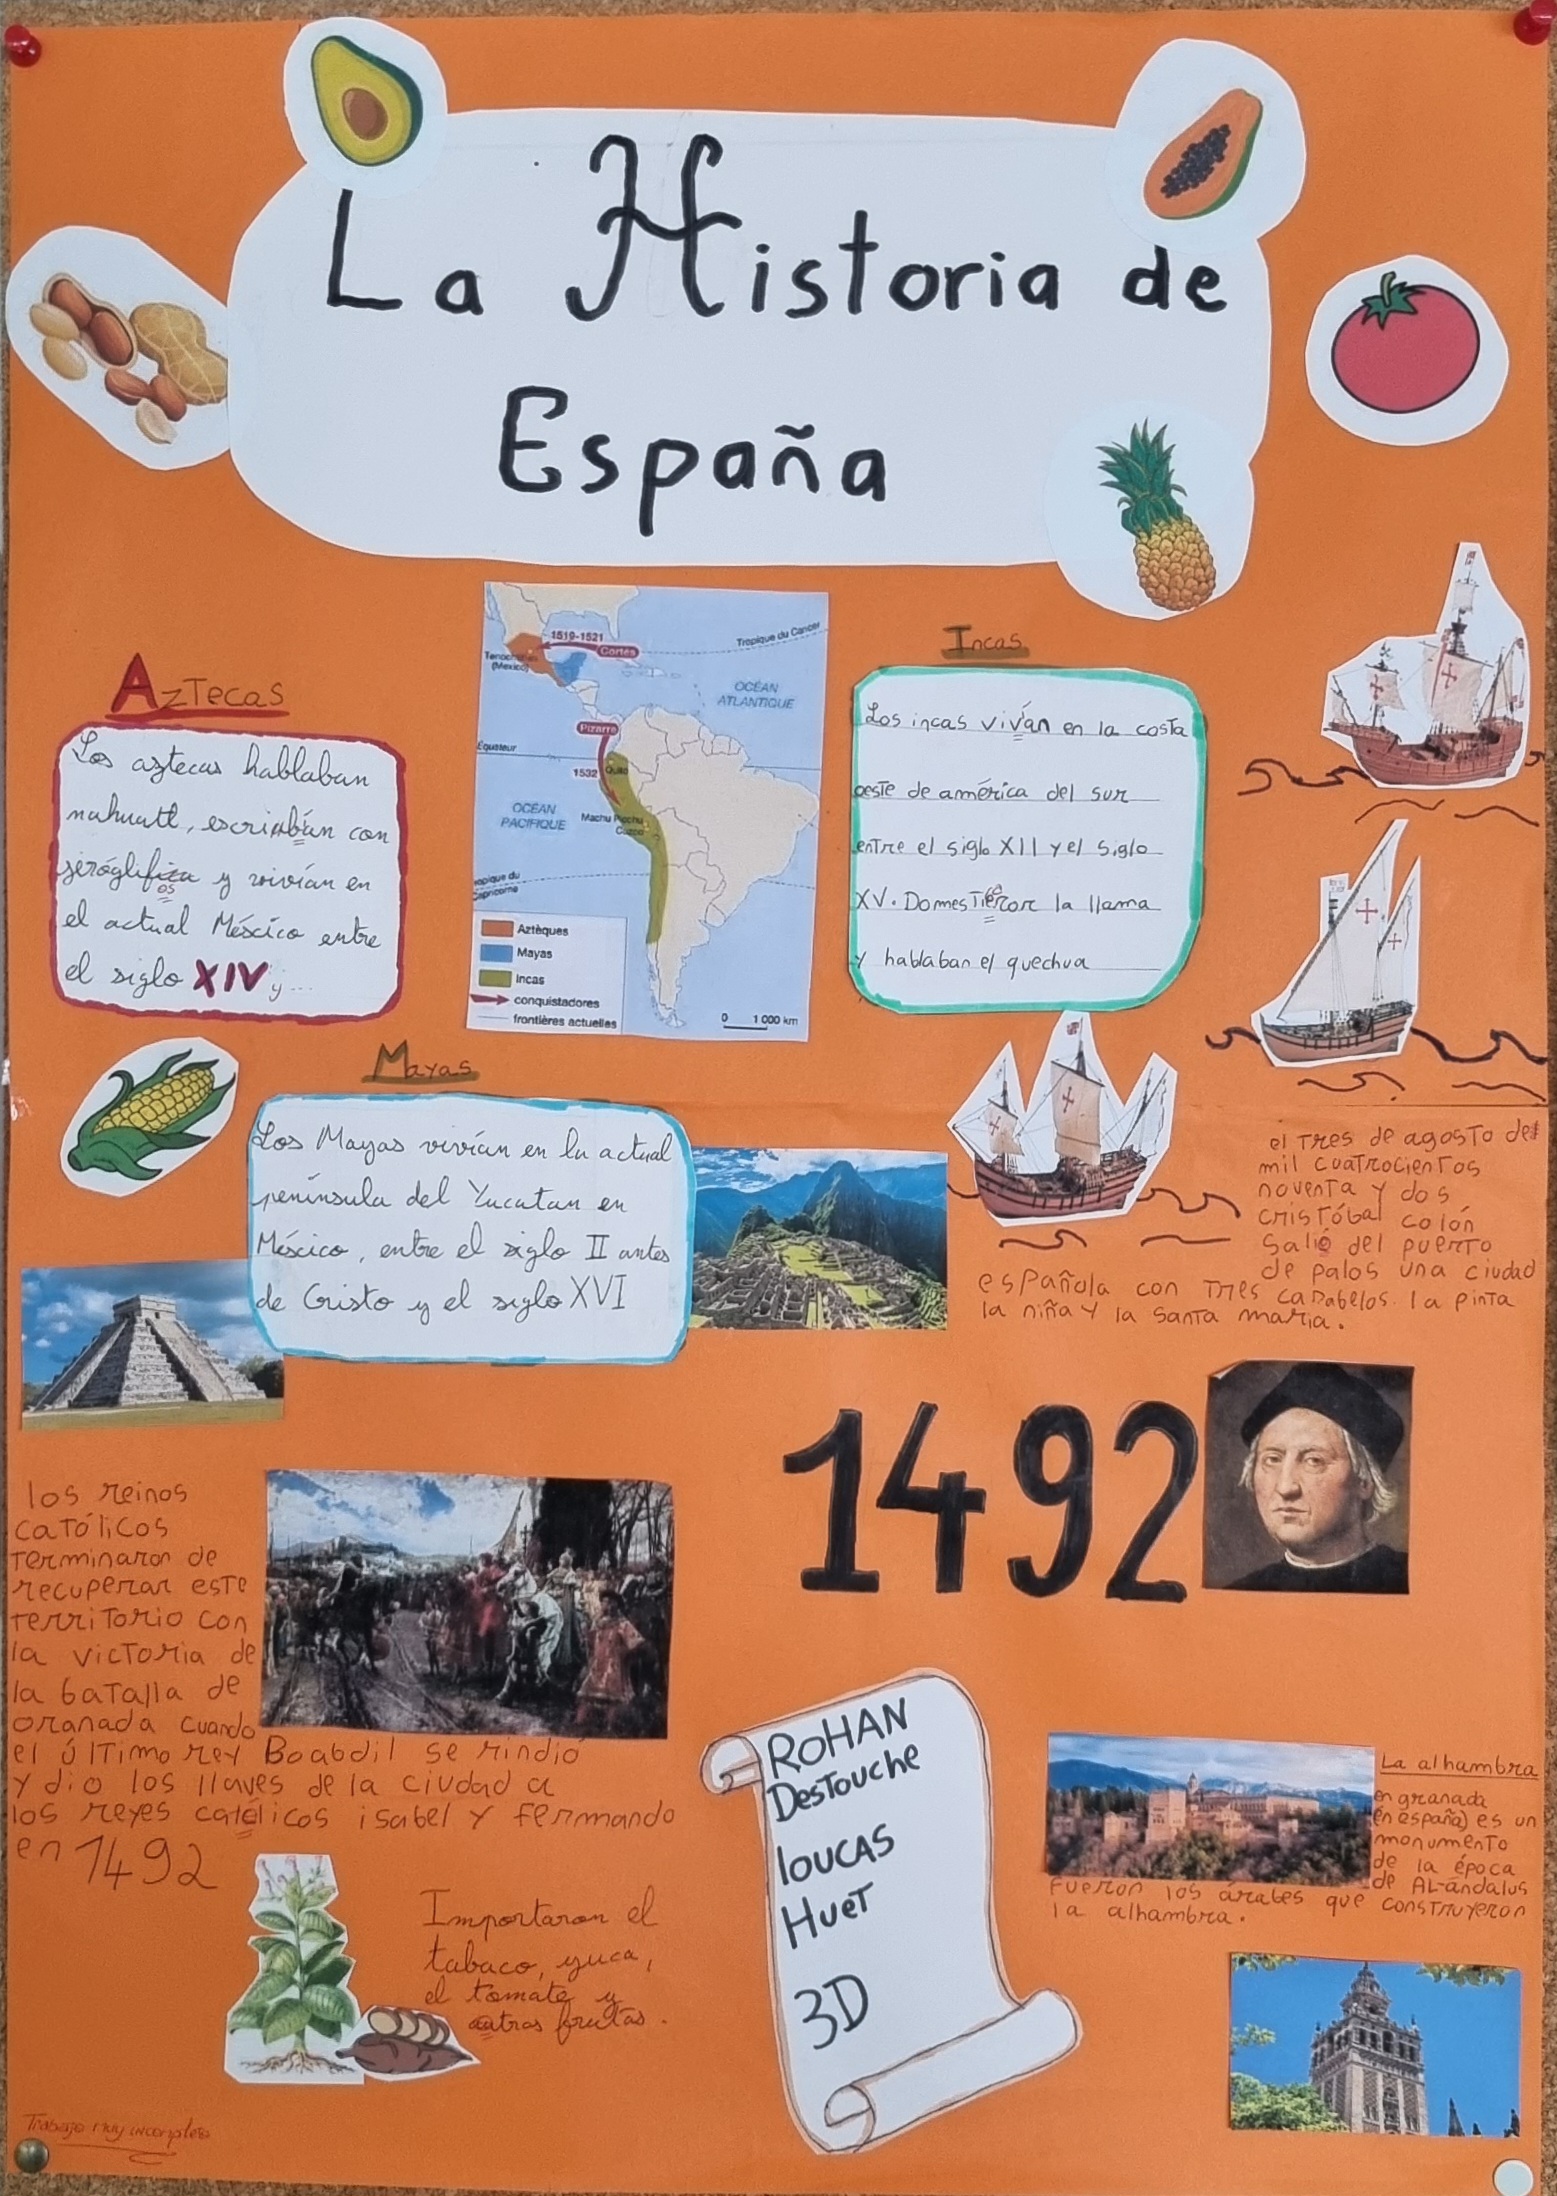 La Historia de
España
Aztecas
Los aztecas hablaban
nahuatl, escribían con
jeroglífica y vivían en
os
el actual México entre
el siglo XIV y...
1519-1521
Cortés
Tropique du Cancer
Tenochtitlan
(Mexico)
OCÉAN
ATLANTIQUE
Pizarre
Équateur
1532
Quito
OCÉAN
PACIFIQUE
Machu Picchu
Cuzco
Tropique du
Capricorne
Aztèques
Mayas
Incas
conquistadores
frontières actuelles
0 1 000 km
Incas
Los incas vivían en la costa
oeste de américa del sur
entre el siglo XII y el siglo
XV. Domesticaron la llama
y hablaban el quechua
Mayas
Los Mayas vivían en la actual
península del Yucatan en
México, entre el siglo II antes
de Cristo y el siglo XVI
el tres de agosto del
mil cuatrocientos
noventa y dos
cristóbal colón
Salió del puerto
de palos una ciudad
española con tres carabelos. la pinta
la niña y la santa maria.
1492
los reinos
católicos
terminaron de
recuperar este
territorio con
la victoria de
la batalla de
granada cuando
el último rey Boabdil se rindió
y dio los llaves de la ciudad a
los reyes católicos isabel y fermando
en 1492
Importaron el
tabaco, yuca,
el tomate y
otras frutas.
ROHAN
Destouche
loucas
Huet
3D
La alhambra
en granada
(en españa) es un
monumento
de la época
de AL-ándalus
Fueron los árabes que construyeron
la alhambra.
Trabajo muy incompleto